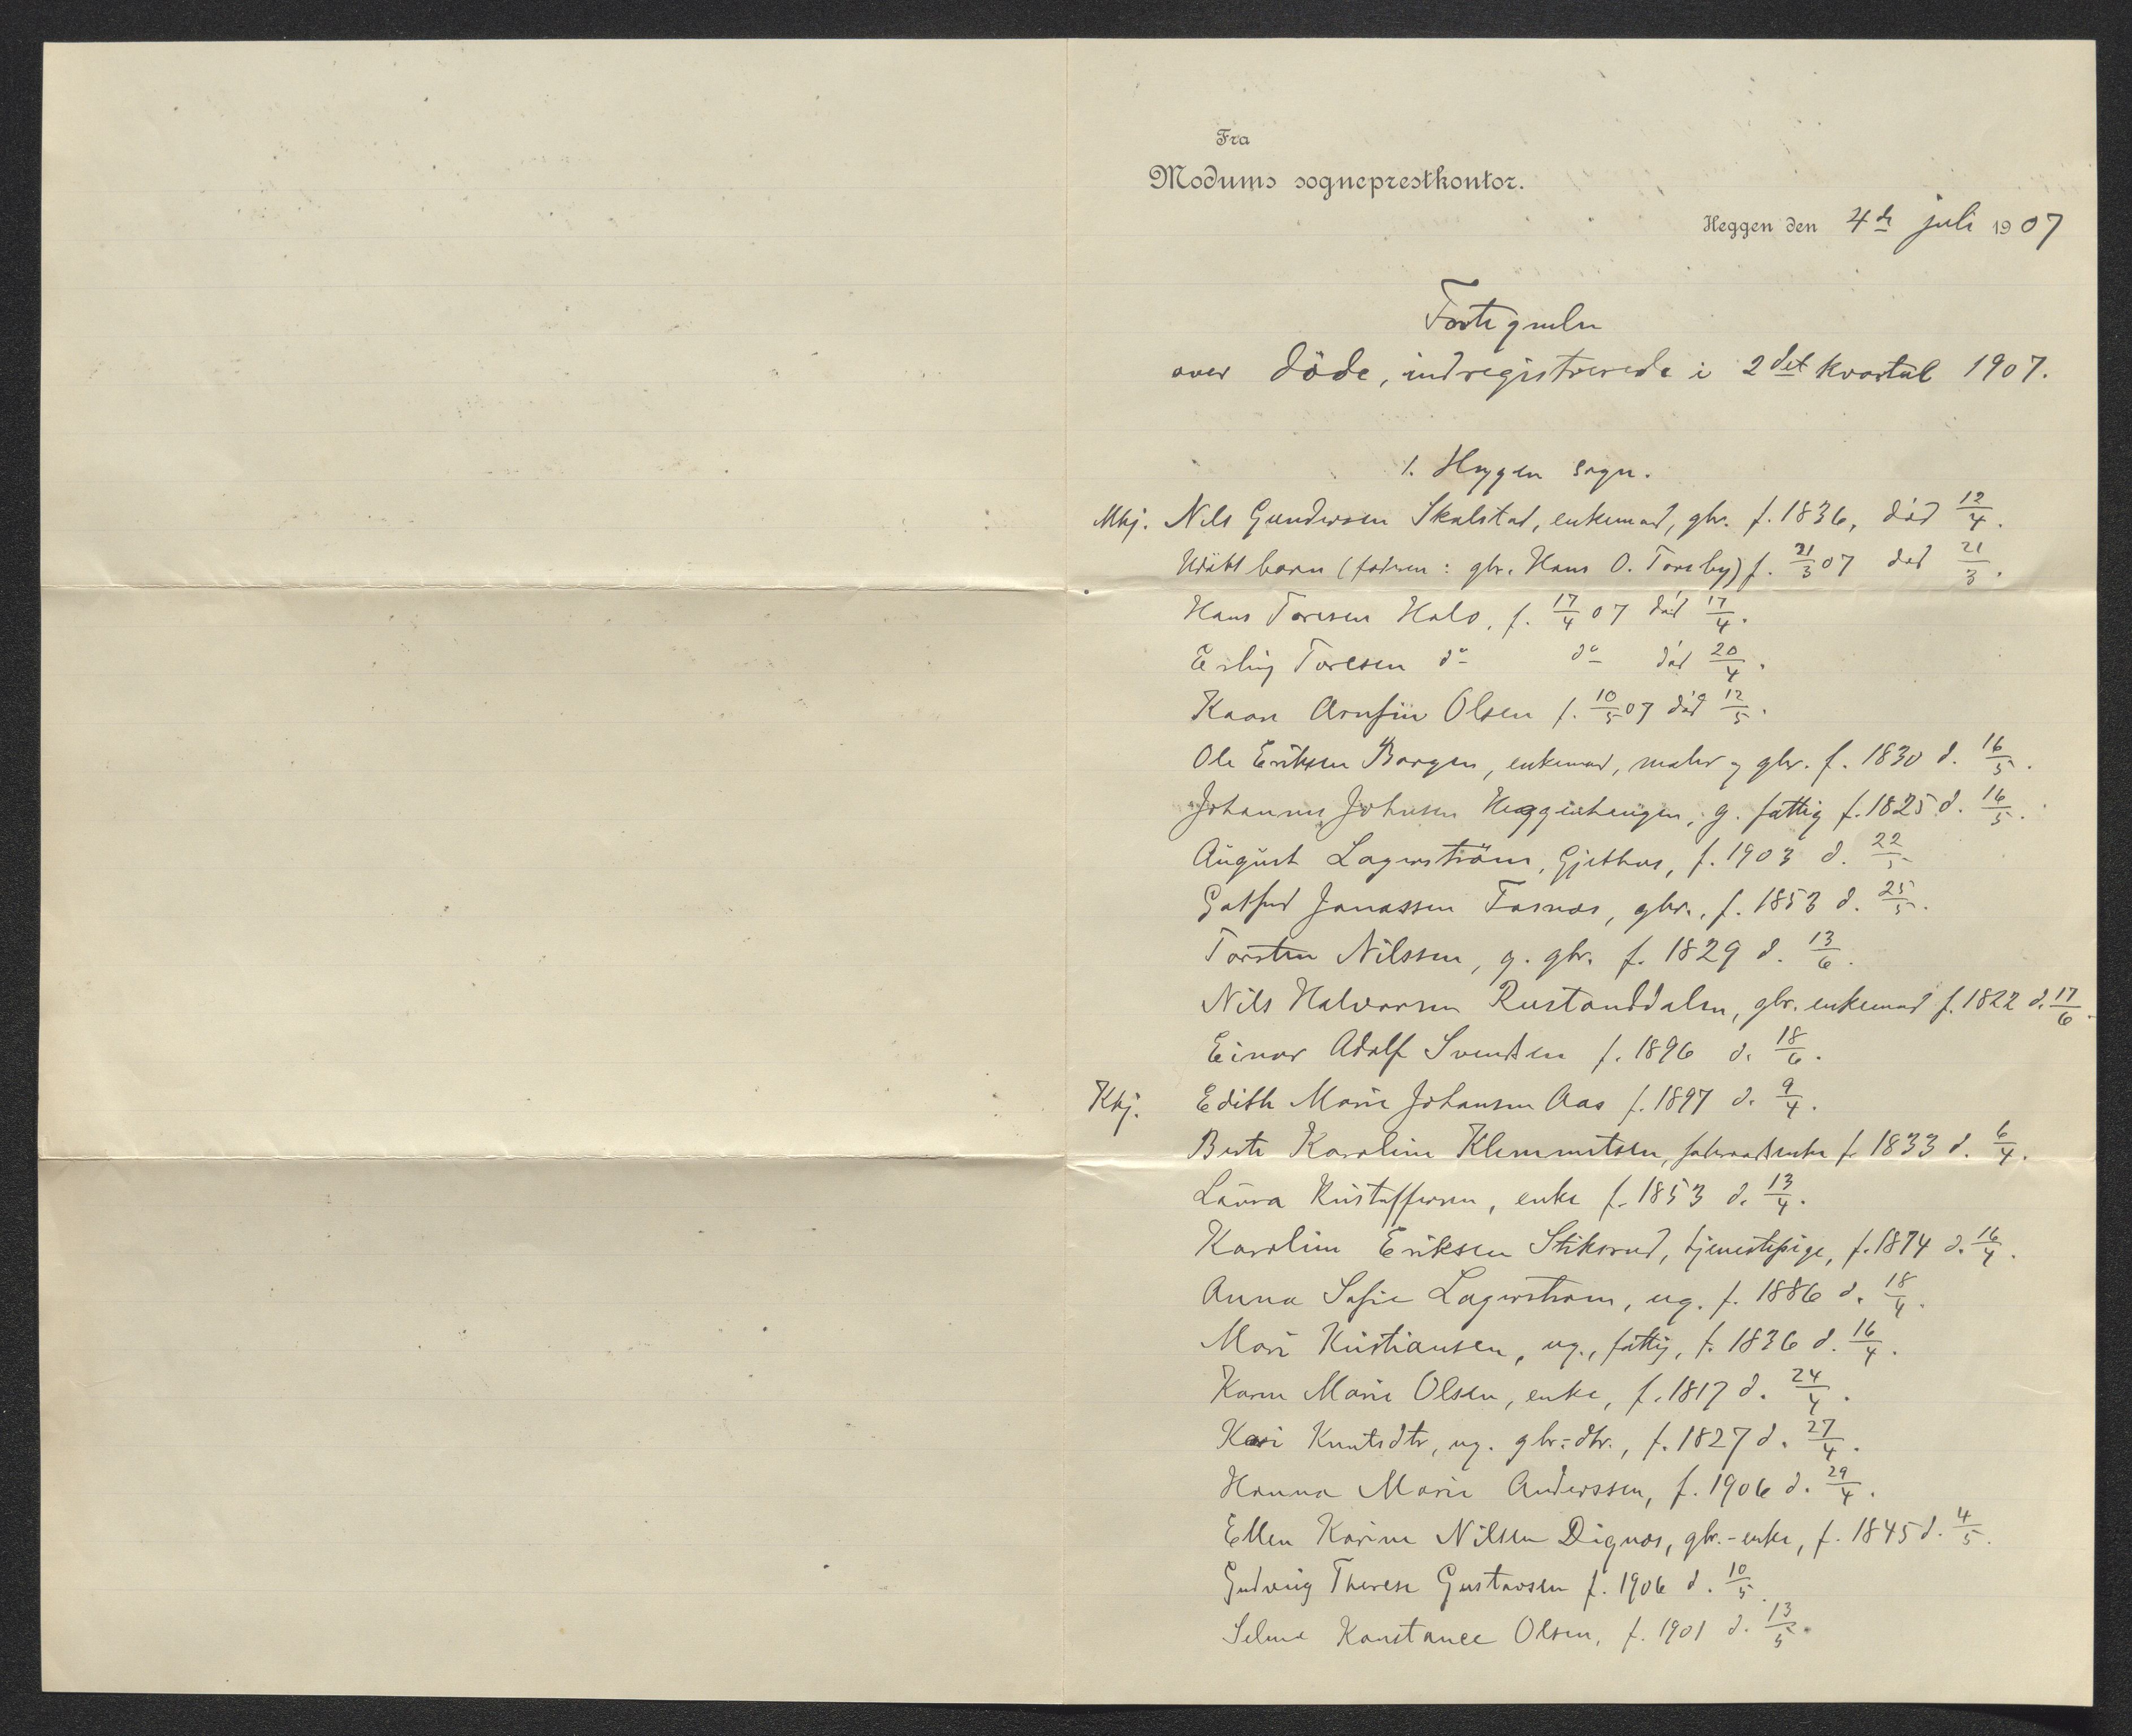 Fra
Modums sogneprestkontor.
Heggen den 4de juli 1907
Fortegnelse
over døde, indregistrerede i 2det kvartal 1907.
1. Heggen sogn.
Mkj. Nils Gundersen Skalstad, enkemand, gbr. f. 1836, død 12/4.
Udøbt barn (faderen: gbr. Hans O. Toreby) f. 21/3 07 død 21/3.
Hans Toresen Holo, f. 17/4 07 død 17/4.
Erling Toresen do do død 20/4.
Kaare Arnfin Olsen f. 10/5 07 død 12/5.
Ole Eriksen Borgen, enkemand, maler og gbr. f. 1830 d. 16/5.
Johannes Johnsen Heggenhengen, g. fattig f. 1825 d. 16/5.
August Lagerström, Gjethus, f. 1903 d. 22/5
Gotfred Jonassen Fosnæs, gbr., f. 1853 d. 25/5.
Torsten Nilssen, g. gbr. f. 1829 d. 13/6.
Nils Halvorsen Rustanddalen, gbr. enkemand f. 1822 d. 17/6.
Einar Adolf Svendsen f. 1896 d. 18/6.
Kkj. Edith Marie Johansen Aas f. 1897 d. 9/4.
Berte Karoline Klemmetsen, f. 1833 d. 6/4.
Laura Kristoffersen, enke f. 1853 d. 13/4.
Karoline Eriksen Stiksrud, tjenestepige, f. 1874 d. 16/4.
Anna Sofie Lagerstrøm, ug. f. 1886 d. 18/4.
Mari Kristiansen, ug., fattig, f. 1836 d. 16/4.
Karen Marie Olsen, enke, f. 1817 d. 24/4.
Kari Knutsdtr, ug. gbr.-dtr., f. 1827 d. 27/4.
Hanna Marie Anderssen, f. 1906 d. 29/4.
Ellen Karine Nilsen Dignæs, gbr.-enke, f. 1845 d. 4/5.
Gudveig Therese Gustavsen f. 1906 d. 10/5.
Selma Konstance Olsen, f. 1901 d. 13/5.